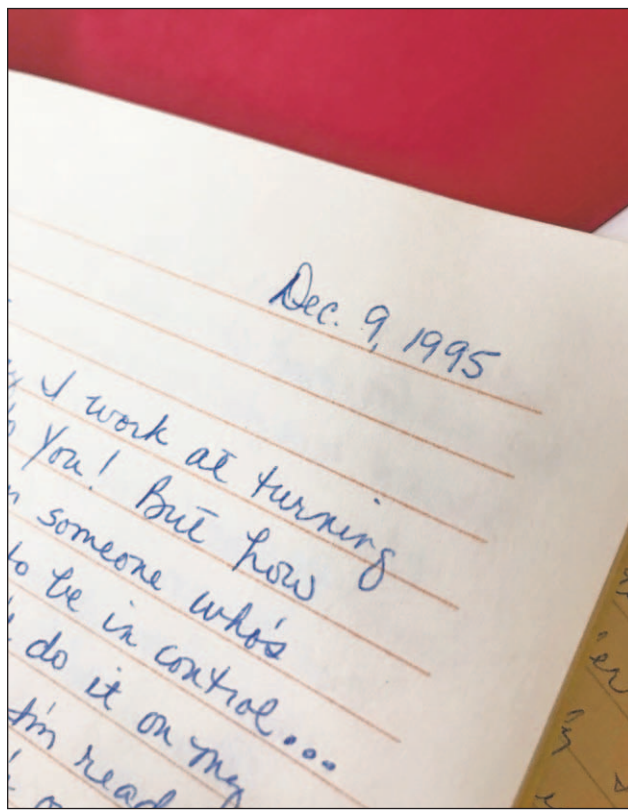 Dec. 9, 1995
I work at turning
You! But how
someone who's
to be in control...
do it on my
I'm read
er